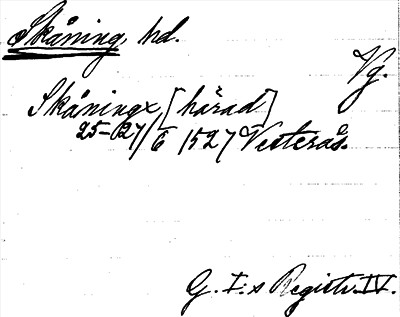 Skåning, hd.
Vg.
Skåningx, [härad]
25–27/6 1527 Vesterås.
G. I:s Registr. IV.